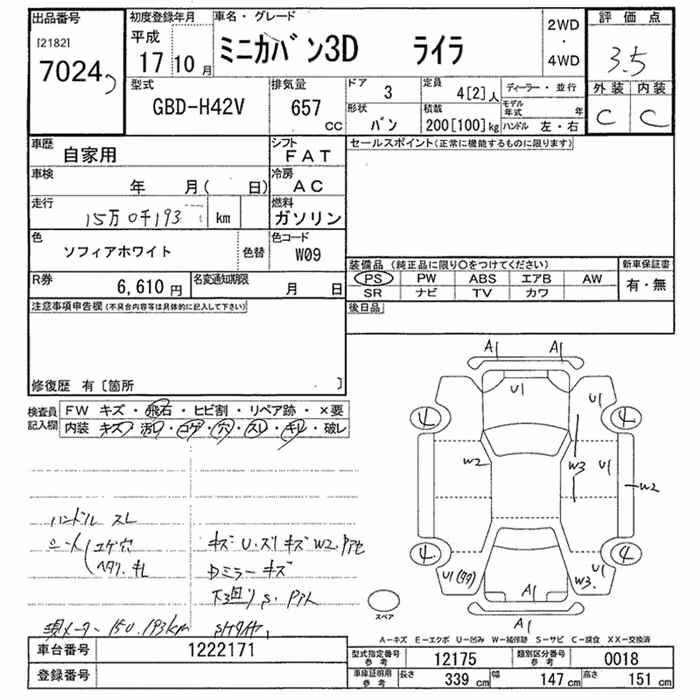 出品番号
[2182]
7024
初度登録年月
平成
17 10月
車名・グレード
ミニカバン3D ライラ
2WD
・
4WD
評価点
3.5
外装 内装
C C
型式
GBD-H42V
排気量
657
CC
ドア
3
定員
4[2]人
ディーラー・並行
モデル年式 年
形状
バン
積載
200[100]kg
ハンドル 左・右
車歴
自家用
シフト
FAT
セールスポイント(正常に機能するものに限ります)
車検
年 月( 日)
冷房
AC
走行
15万0千193 km
燃料
ガソリン
色
ソフィアホワイト
色替
色コード
W09
装備品(純正品に限り○をつけてください)
新車保証書
PS PW ABS エアB AW
有・無
SR ナビ TV カワ
R券
6,610円
名変通知期限
月 日
後日品
注意事項申告欄(不具合内容等は具体的に記入して下さい)
修復歴 有〔箇所 〕
検査員記入欄
FW キズ・飛石・ヒビ割・リペア跡・×要
内装 キズ・汚レ・コゲ・穴・スレ・キレ・破レ
ハンドル スレ
シート コゲ穴
ヘタリ キレ
キズ U.スリキズ W2.
Dミラーキズ
下廻り S.
現メーター 150.193km
A1 A1
U1 U1
4 4
W2 W3 U1 W2
4 4
U1 W3 U1
A1
A1
スペア
A-キズ E-エクボ U-凹み W-補修跡 S-サビ C-腐食 XX-交換済
車台番号
1222171
登録番号
型式指定番号
参考
12175
類別区分番号
参考
0018
車庫証明用
参考
長さ 339 cm 幅 147 cm 高さ 151 cm